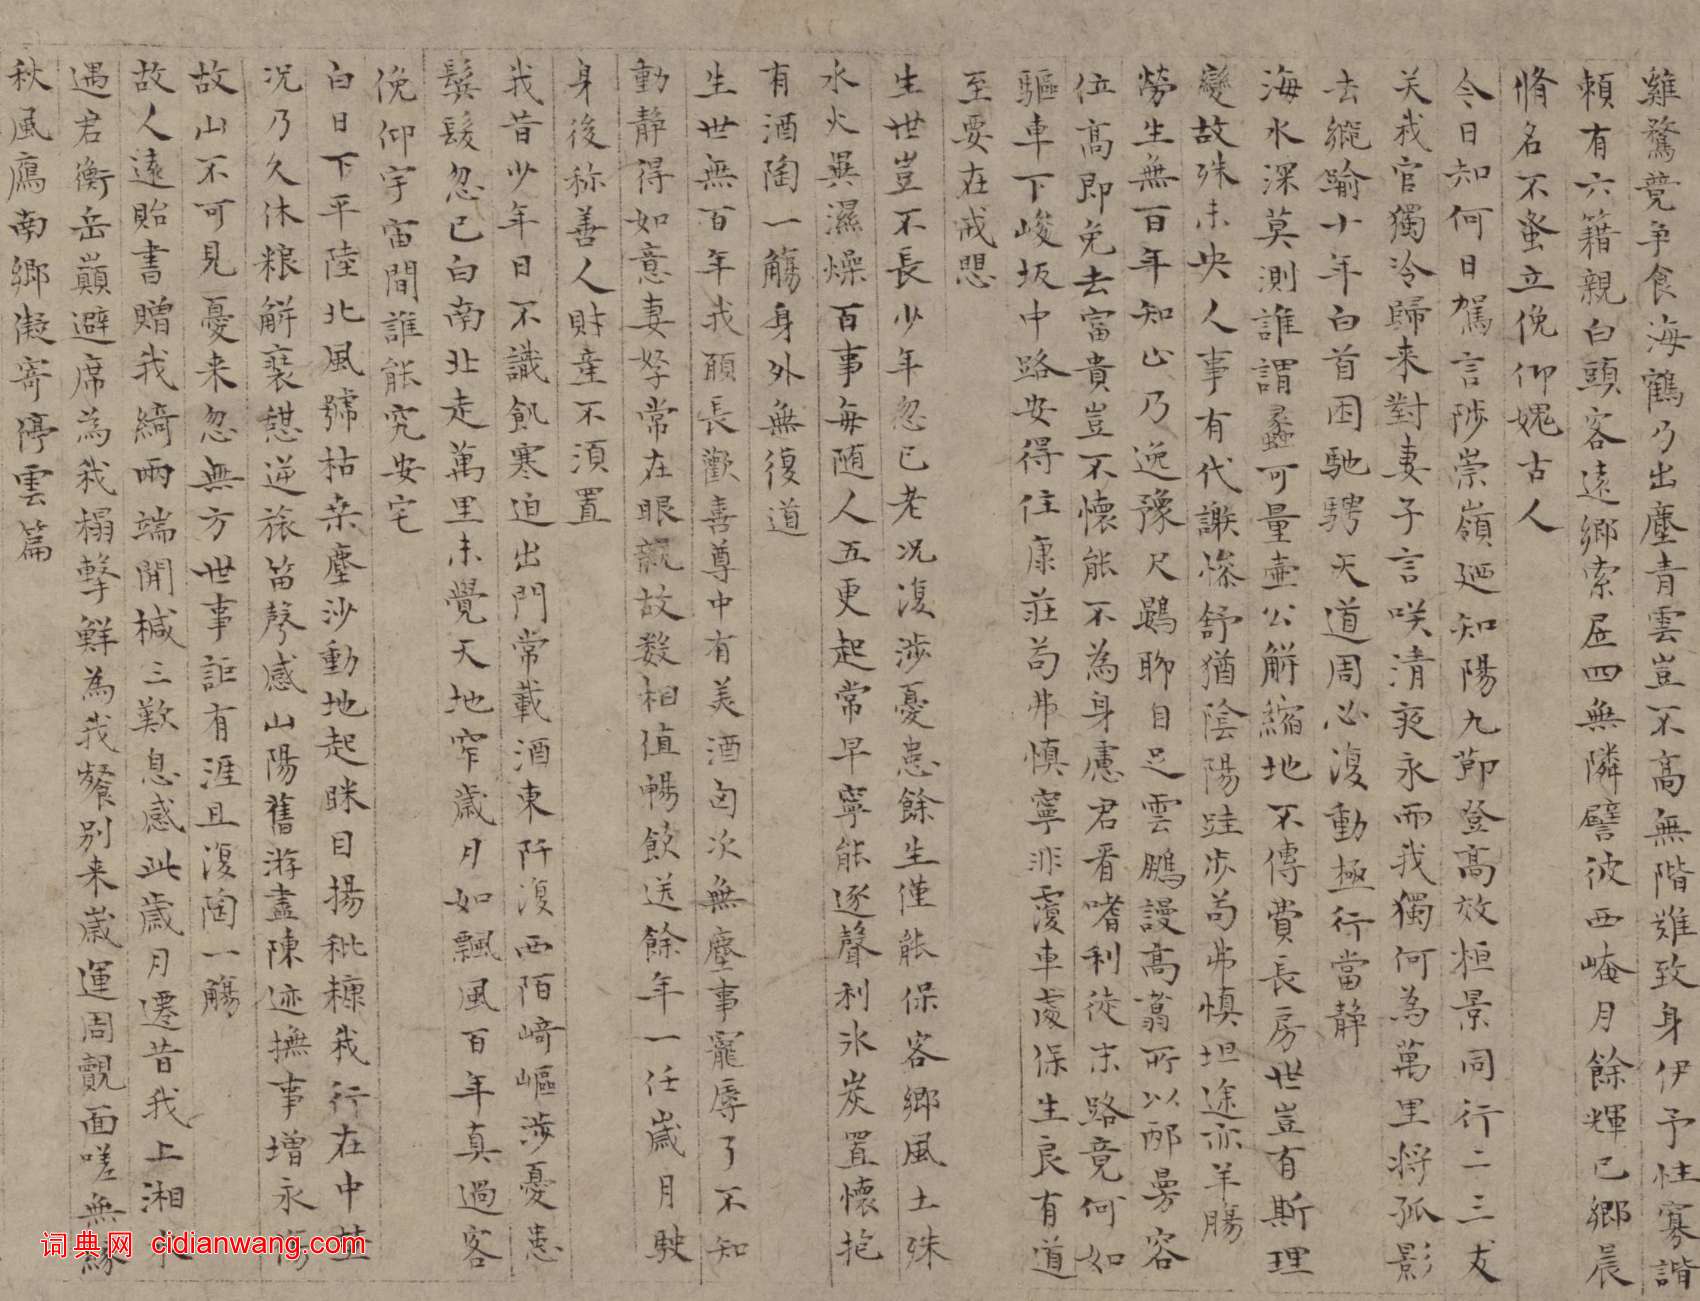 雞鶩競爭食海鶴乃出塵青雲豈不高無階難致身伊予性寡諧
賴有六籍親白頭客遠鄉索居四無隣譬彼西崦月餘輝已鄉晨
脩名不蚤立俛仰媿古人
今日知何日駕言陟崇嶺廼知陽九節登高效桓景同行二三友
笑我官獨冷歸来對妻子言咲清夜永而我獨何為萬里将孤影
去縱踰十年白首困馳騁天道周必復動極行當静
海水深莫測誰謂蠡可量壷公解縮地不傳費長房世豈有斯理
變故殊未央人事有代謝慘舒猶陰陽跬步苟弗慎坦途亦羊腸
勞生無百年知止乃逸豫尺鷃聊自足雲鵬謾高翥所以邴曼容
位高即免去富貴豈不懷能不為身慮君看嗜利徒末路竟何如
驅車下峻坂中路安得住康莊苟弗慎寧非覆車處保生良有道
至要在戒思
生世豈不長少年忽已老况復涉憂患餘生僅能保客鄉風土殊
水火異濕燥百事每随人五更起常早寧能逐聲利氷炭置懷抱
有酒陶一觴身外無復道
生世無百年我願長歡喜尊中有美酒囱次無塵事寵辱了不知
動静得如意妻孥常在眼親故数相值暢飲送餘年一任歲月駛
身後称善人財産不須置
我昔少年日不識飢寒迫出門常載酒東阡復西陌崎嶇涉憂患
鬓髮忽已白南北走萬里未覺天地窄歲月如飄風百年真過客
俛仰宇宙間誰能究安宅
白日下平陸北風號枯桒塵沙動地起眯目揚秕糠我行在中野
况乃久休粮解裘憇逆旅笛聲感山陽舊游盡陳迹撫事增永傷
故山不可見憂来忽無方世事詎有涯且復陶一觴
故人遠貽書贈我綺兩端開椷三歎息感此歲月遷昔我上湘水
遇君衡岳巔避席為我榻擊鮮為我餐别来歲運周覿面嗟無緣
秋風鴈南鄉凝寄停雲篇
词典网 cidianwang.com